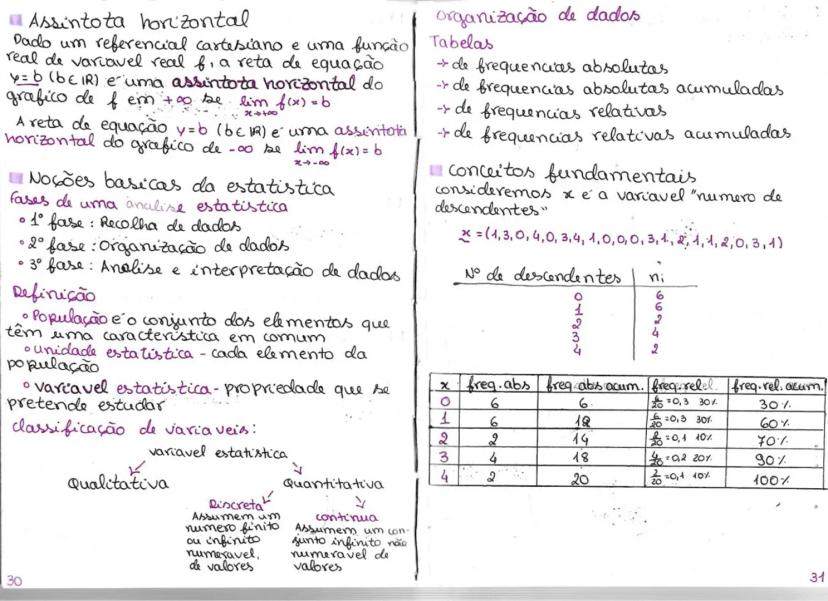 Assintota horizontal
Dado um referencial cartesiano e uma função
real de variavel real f, a reta de equação
y=b (b∈IR) é uma assintota horizontal do
grafico de f em +∞ se lim f(x)=b
x→+∞
A reta de equação y=b (b∈IR) é uma assintota
horizontal do grafico de -∞ se lim f(x)=b
x→-∞
Noções basicas da estatistica
Fases de uma analise estatistica
• 1ª fase: Recolha de dados
• 2ª fase: Organização de dados
• 3ª fase: Analise e interpretação de dados
Definição
• População é o conjunto dos elementos que
têm uma caracteristica em comum
• unidade estatistica - cada elemento da
população
• variavel estatistica - propriedade que se
pretende estudar
classificação de variaveis:
variavel estatistica
Qualitativa Quantitativa
Discreta
Assumem um
numero finito
ou infinito
numeravel,
de valores
continua
Assumem um con-
junto infinito não
numeravel de
valores
30
Organização de dados
Tabelas
→ de frequencias absolutas
→ de frequencias absolutas acumuladas
→ de frequencias relativas
→ de frequencias relativas acumuladas
conceitos fundamentais
consideremos x é a variavel "numero de
descendentes"
x=(1,3,0,4,0,3,4,1,0,0,0,3,1,2,1,1,2,0,3,1)
Nº de descendentes | ni
0 6
1 6
2 2
3 4
4 2
x freq. abs freq. abs acum. freq. rel. freq. rel. acum.
0 6 6 6/20=0,3 30% 30%
1 6 12 6/20=0,3 30% 60%
2 2 14 2/20=0,1 10% 70%
3 4 18 4/20=0,2 20% 90%
4 2 20 2/20=0,1 10% 100%
31